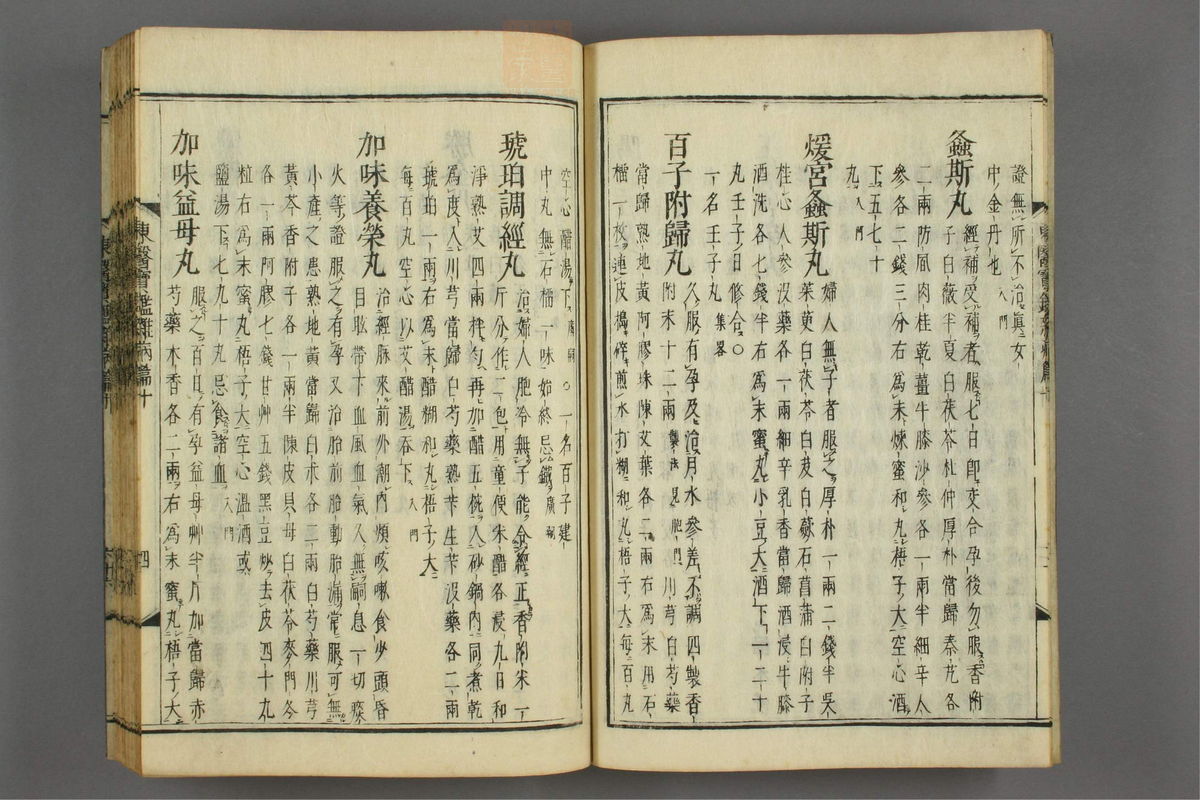 證無所不治眞女
中金丹也入門
螽斯丸
經補受補者服七日卽交合孕後勿服香附
子白薇半夏白茯苓杜仲厚朴當歸秦艽各
二兩防風肉桂乾薑牛膝沙參各一兩半細辛人
參各二錢三分右爲末煉蜜和丸梧子大空心酒
下五七十
丸入門
煖宮螽斯丸
婦人無子者服之厚朴一兩二錢半吳
茱萸白茯苓白芨白蘞石菖蒲白附子
桂心人參沒藥各一兩細辛乳香當歸酒浸牛膝
酒洗各七錢半右爲末蜜丸小豆大酒下一二十
丸壬子日修合○
一名壬子丸集畧
百子附歸丸
久服有孕及治月水參差不調四製香
附末十二兩製法見胞門川芎白芍藥
當歸熟地黃阿膠珠陳艾葉各二兩右爲末用石
榴一枚連皮搗碎煎水打糊和丸梧子大每百丸
空心醋湯下○一名百子建
中丸無石榴一味始終忌鐵廣嗣
琥珀調經丸
治婦人胞冷無子能令經正香附米一
斤分作二包用童便米醋各浸九日和
淨熟艾四兩拌勻再加醋五椀入砂鍋內同煮乾
爲度入川芎當歸白芍藥熟芐生芐沒藥各二兩
琥珀一兩右爲末醋糊和丸梧子大
每百丸空心以艾醋湯吞下入門
加味養榮丸
治經脉來前外潮內煩咳嗽食少頭昏
目眩帶下血風血氣久無嗣息一切痰
火等證服之有孕又治胎前胎動胎漏常服可無
小產之患熟地黃當歸白朮各二兩白芍藥川芎
黃芩香附子各一兩半陳皮貝母白茯苓麥門冬
各一兩阿膠七錢甘艸五錢黑豆炒去皮四十九
粒右爲末蜜丸梧子大空心溫酒或
鹽湯下七九十丸忌食諸血入門
加味益母丸
服之百日有孕益母艸半斤加當歸赤
芍藥木香各二兩右爲末蜜丸梧子大
東醫寶鑑雜病篇十
四